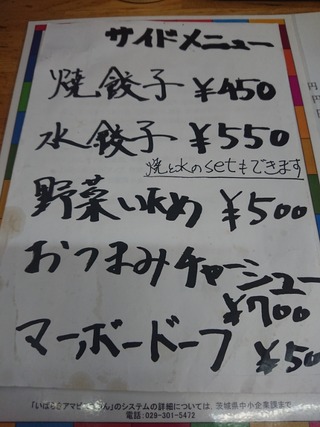 サイドメニュー
焼餃子 ¥450
水餃子 ¥550
焼と水のsetもできます
野菜いため ¥500
おつまみチャーシュー
¥700
マーボードーフ ¥50
「いばらきアマビエちゃん」のシステムの詳細については、茨城県中小企業課まで
電話:029-301-5472
円
円